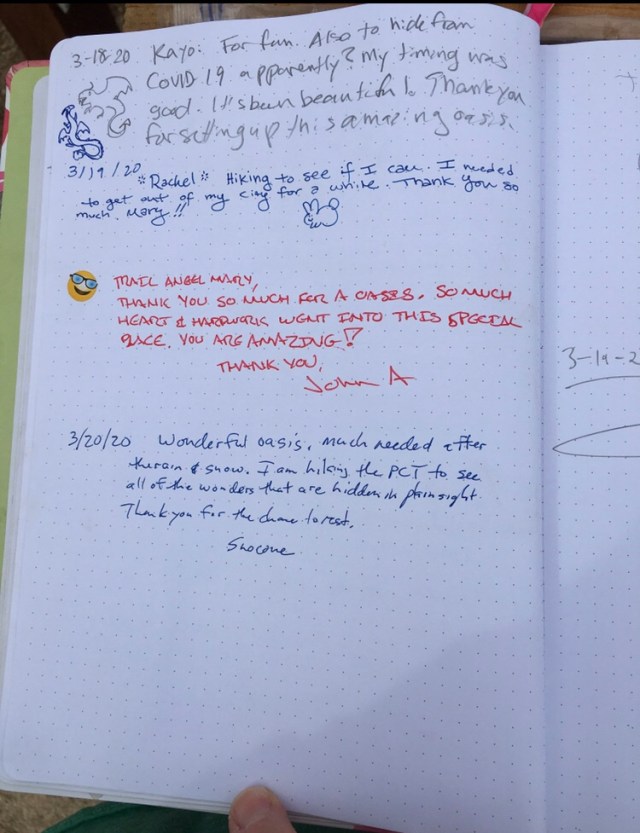 3-18-20 Kayo: For fun. Also to hide from
COVID 19 apparently? My timing was
good. It's been beautiful. Thank you
for setting up this amazing oasis.
3/19/20 *Rachel* Hiking to see if I can. I needed
to get out of my city for a while. Thank you so
much, Mary!!
TRAIL ANGEL MARY,
THANK YOU SO MUCH FOR A OASES. SO MUCH
HEART & HARDWORK WENT INTO THIS SPECIAL
PLACE. YOU ARE AMAZING!
THANK YOU,
John A
3/20/20 Wonderful oasis, much needed after
the rain & snow. I am hiking the PCT to see
all of the wonders that are hidden in plain sight.
Thank you for the chance to rest.
Snocone
3-19-2